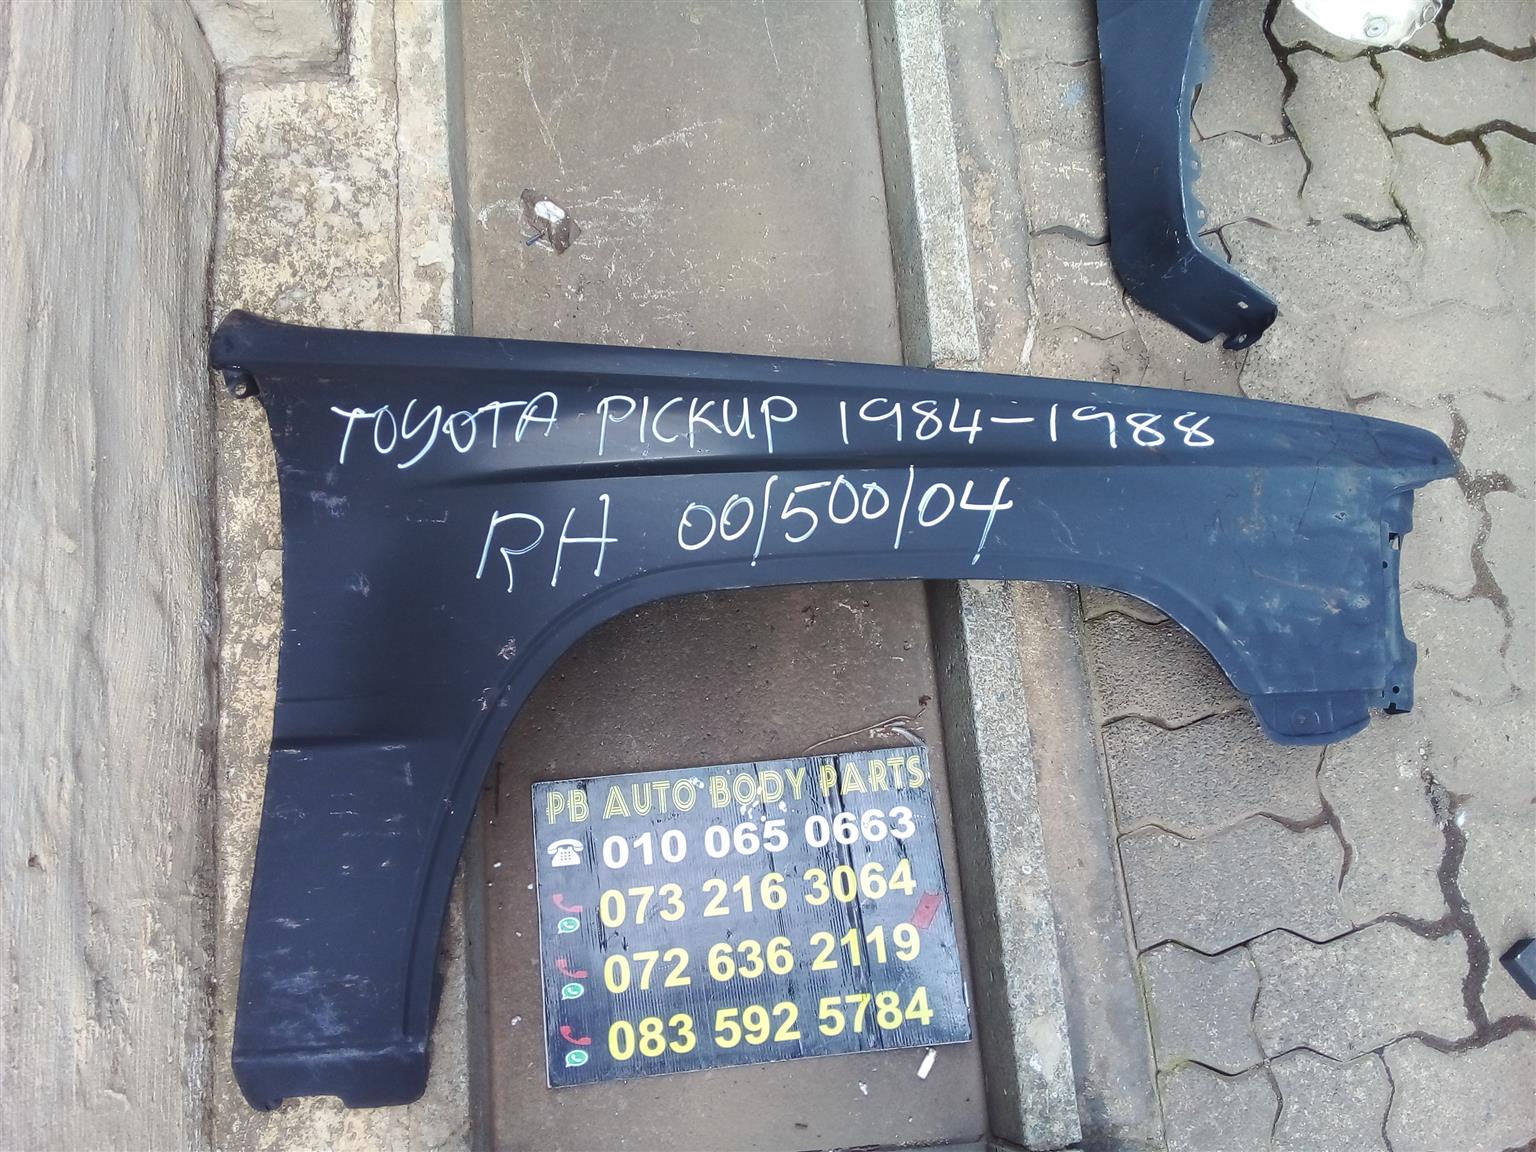 TOYOTA PICKUP 1984-1988
RH 00/500/04
PB AUTO BODY PARTS
010 065 0663
073 216 3064
072 636 2119
083 592 5784